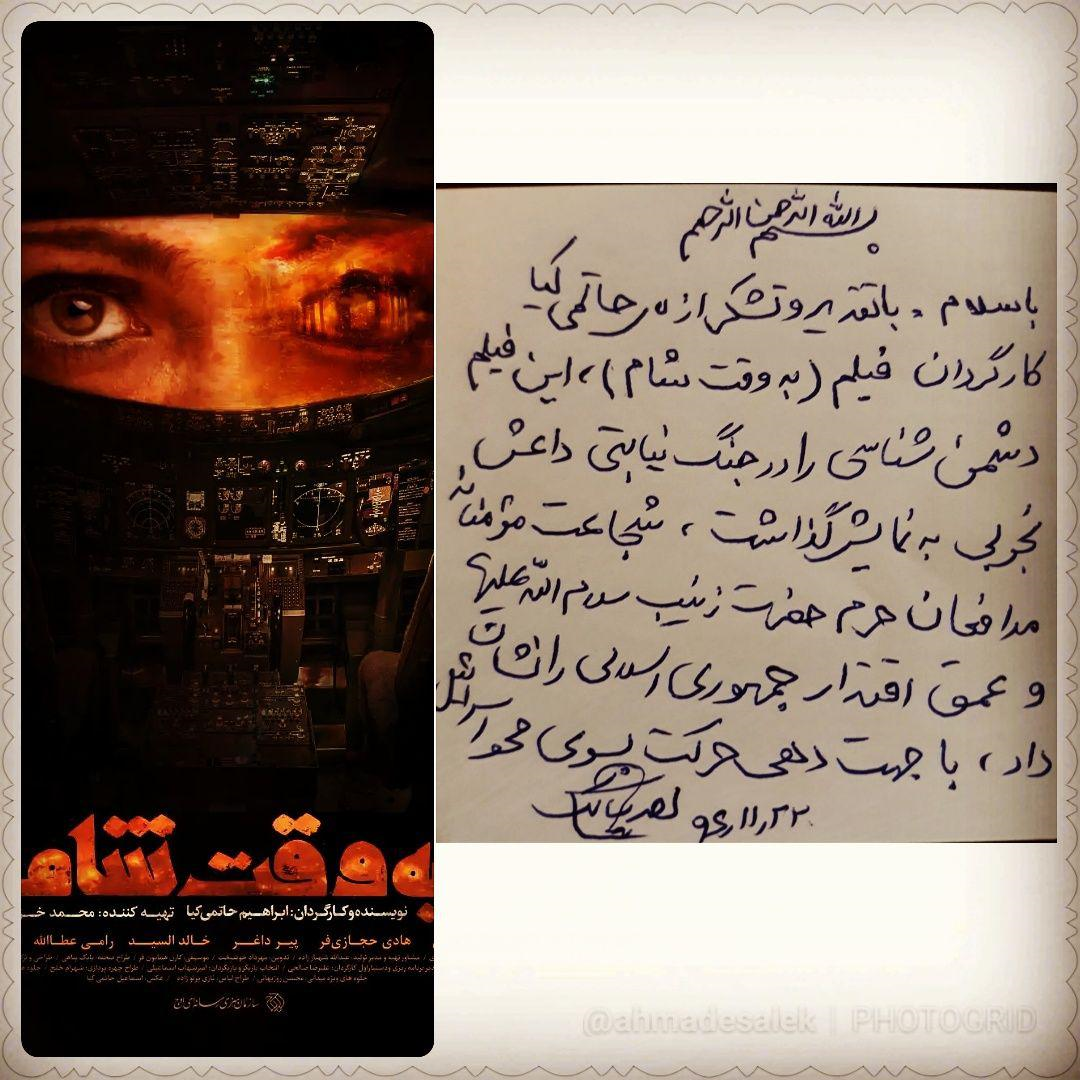 به وقت شام
نویسنده و کارگردان: ابراهیم حاتمی‌کیا تهیه کننده: محمد خـ
هادی حجازی‌فر پیر داغر خالد السید رامی عطاالله
سازمان هنری رسانه‌ای اوج
بسم الله الرحمن الرحیم
باسلام . باتقدیر و تشکر از حاتمی کیا
کارگردان فیلم (به وقت شام)، این فیلم
دشمن شناسی را در جنگ نیابتی داعش
بخوبی به نمایش گذاشت ، شجاعت مؤمنانه
مدافعان حرم حضرت زینب سلام الله علیها
و عمق اقتدار جمهوری اسلامی را نشان
داد ، با جهت دهی حرکت بسوی محو اسرائیل
احمد سالک ۹۶/۱۱/۲۲
@ahmadesalek | PHOTOGRID